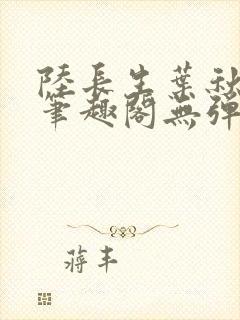 陸長生葉秋
筆趣閣無彈
蔣丰